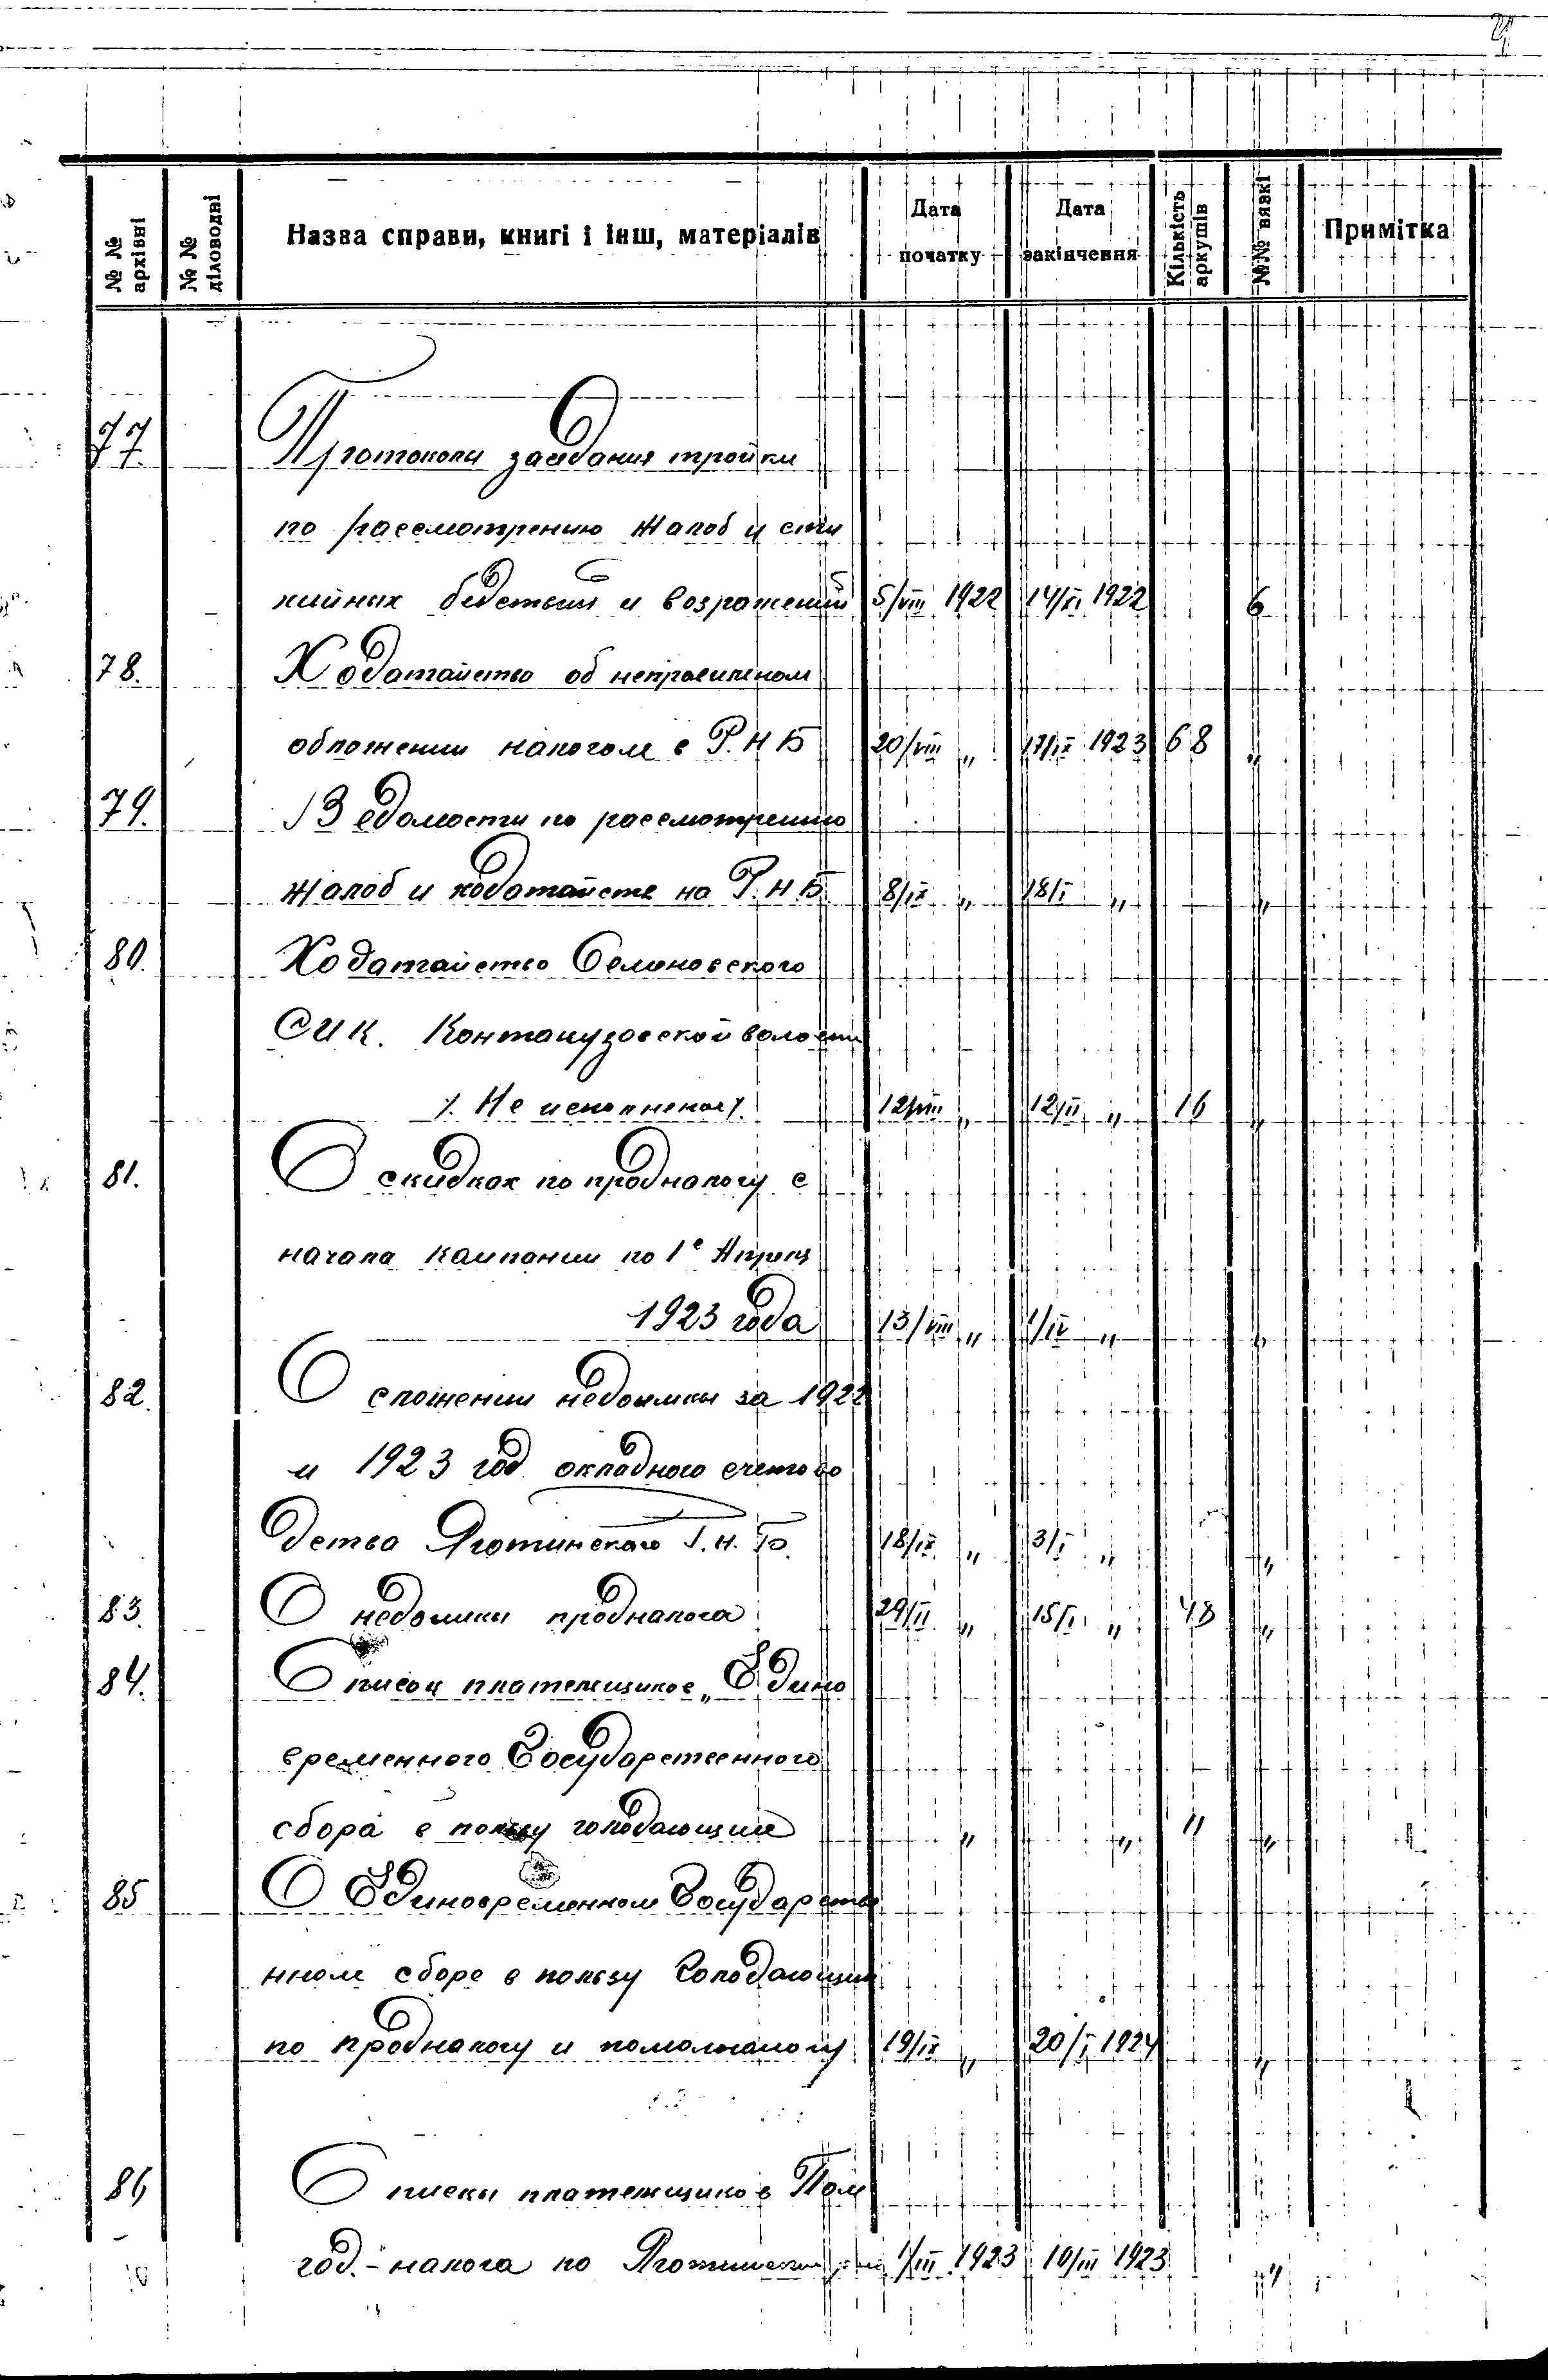 № № архівні № № діловодні Назва справи, книги і інш, матеріалів Дата початку Дата закінчення Кількість аркушів №№ вязкі Примітка
77. Протоколи заседания тройки
по рассмотрению жалоб и сти
хийных бедствий и возражений 5/VIII 1922 14/XI 1922 6
78. Ходатайство об непросильном
обложении налогом в Р.Н.Б 20/VIII „ 17/IX 1923 68 „
79. Ведомости по рассмотрению
жалоб и ходатайств на Р.Н.Б. 8/IX „ 18/I „ „
80. Ходатайство Семеновского
СИК. волости
/. Не исполнено /. 12/VIII „ 12/II „ 16 „
81. О скидках по продналогу с
начала кампании по 1е Апреля
1923 года 13/VIII „ 1/IV „ „
82. О сложении недоимки за 1922
и 1923 год окладного счетово
детва Яготинского Г.Н.Б. 18/IX „ 3/I „ „
83. О недоимки продналога 29/II „ 15/I „ 48 „
84. Список плательщиков „Едино
временного Государственного
сбора в пользу голодающим „ „ 11 „
85 О Единовременном Государстве
нном сборе в пользу Голодающим
по продналогу и помолналогу 19/IX „ 20/I 1924 „
86 Списки плательщиков Пом
год.-налога по 1/III 1923 10/III 1923 „